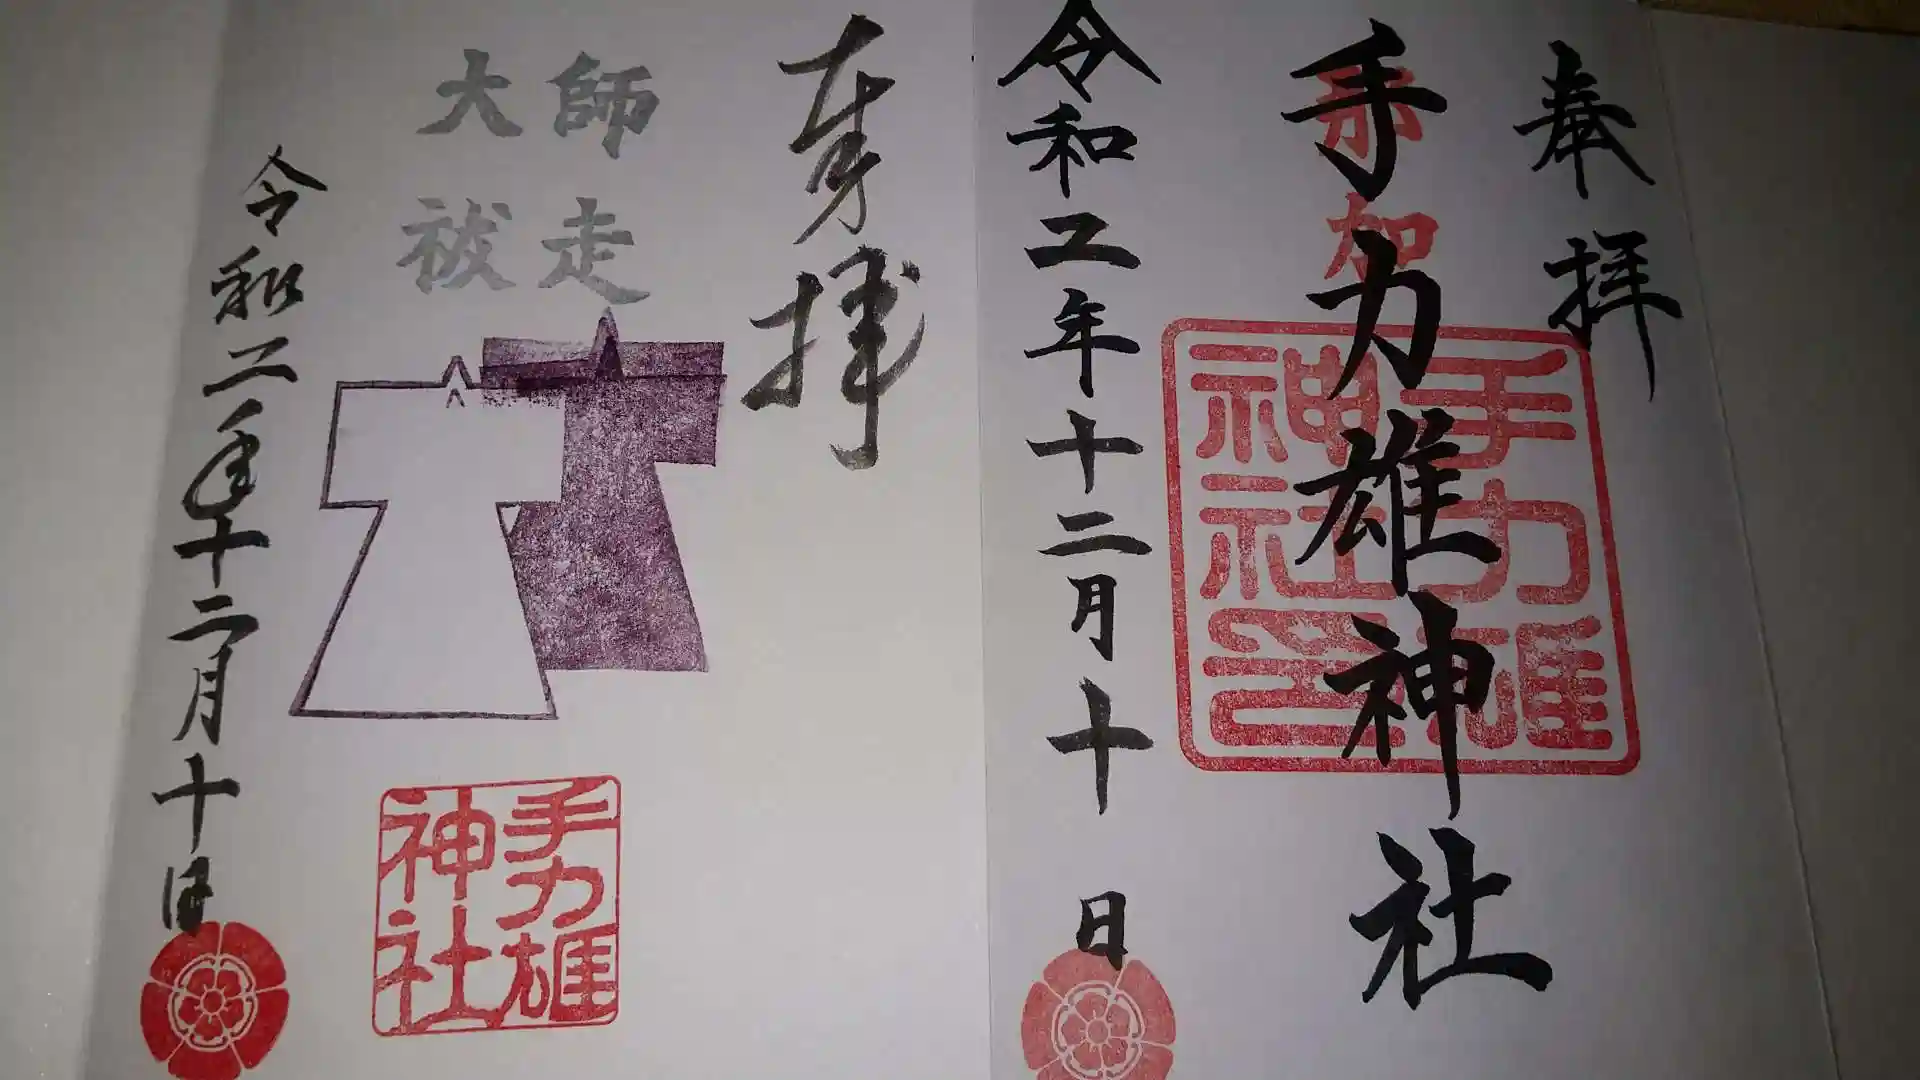 奉拝
手力雄神社
手力雄
神社印
令和二年十二月十日
奉拝
師走
大祓
手力雄
神社
令和二年十二月十日